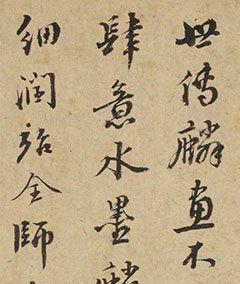 世傳麟畫木
肆意水墨麟
細潤詒全師